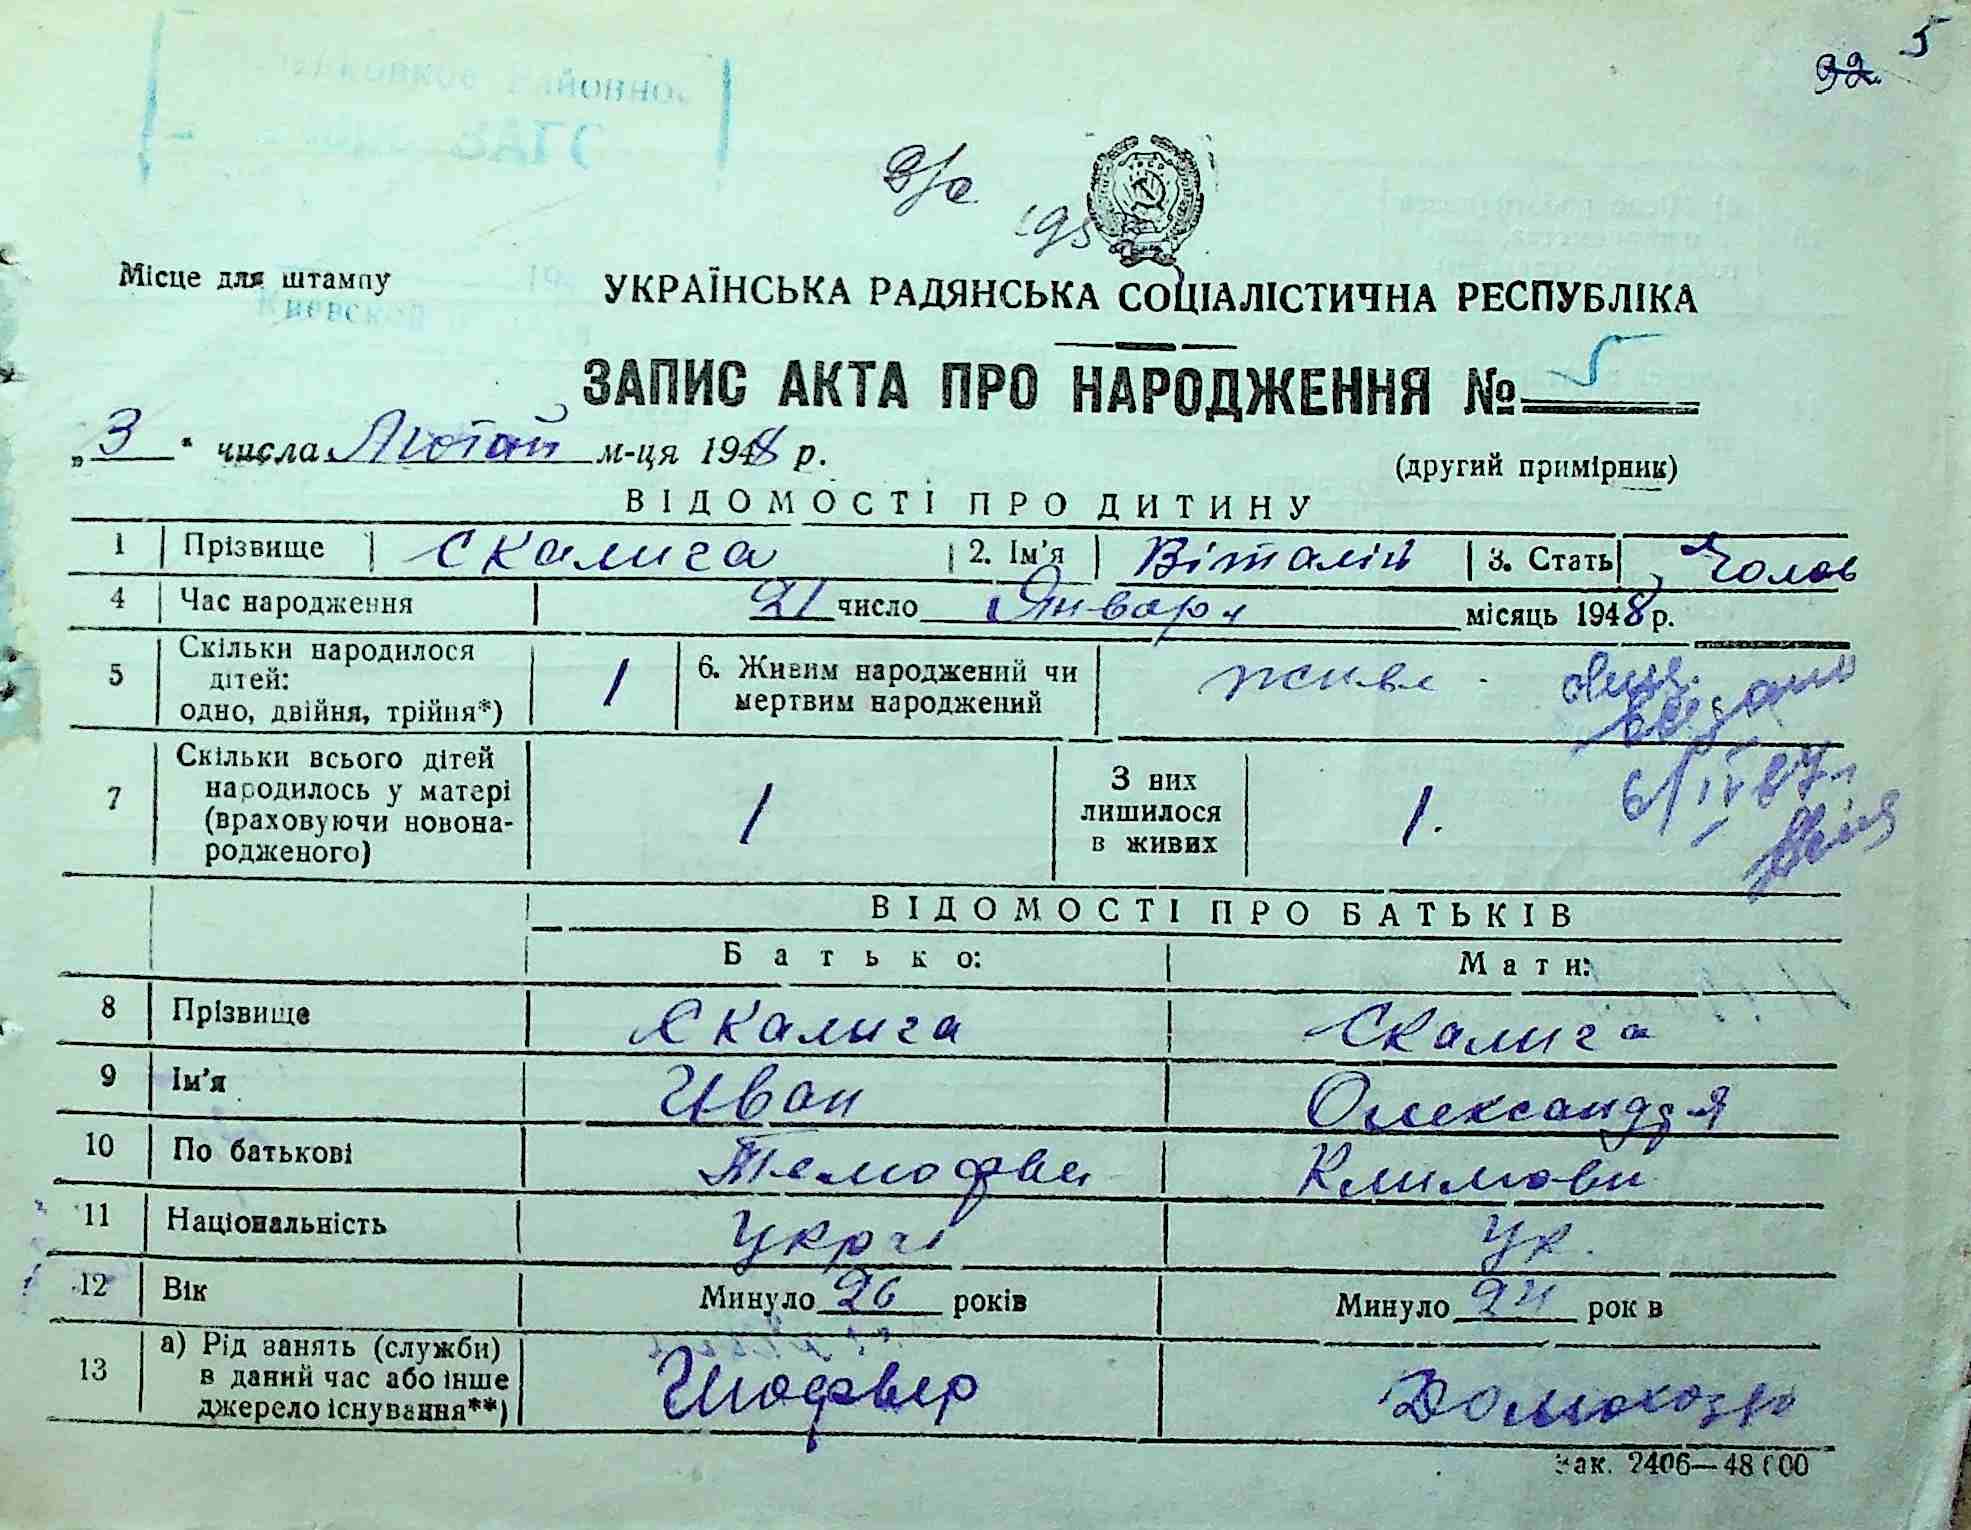 5
92
195
Місце для штампу
УКРАЇНСЬКА РАДЯНСЬКА СОЦІАЛІСТИЧНА РЕСПУБЛІКА
ЗАПИС АКТА ПРО НАРОДЖЕННЯ № 5
„ 3 “ числа Лютий м-ця 1948 р.
(другий примірник)
ВІДОМОСТІ ПРО ДИТИНУ
1 Прізвище Скалига 2. Ім’я Віталій 3. Стать Чолов
4 Час народження 21 число Января місяць 1948 р.
5 Скільки народилося дітей: одно, двійня, трійня*) 1 6. Живим народжений чи мертвим народжений живе
7 Скільки всього дітей народилось у матері (враховуючи новонародженого) 1 З них лишилося в живих 1.
ВІДОМОСТІ ПРО БАТЬКІВ
Батько: Мати:
8 Прізвище Скалига Скалига
9 Ім’я Иван Олександря
10 По батькові Темофеи Климови
11 Національність Ук.
12 Вік Минуло 26 років Минуло 24 рок в
13 а) Рід занять (служби) в даний час або інше джерело існування**) Шофьер
Зак. 2406—48 000